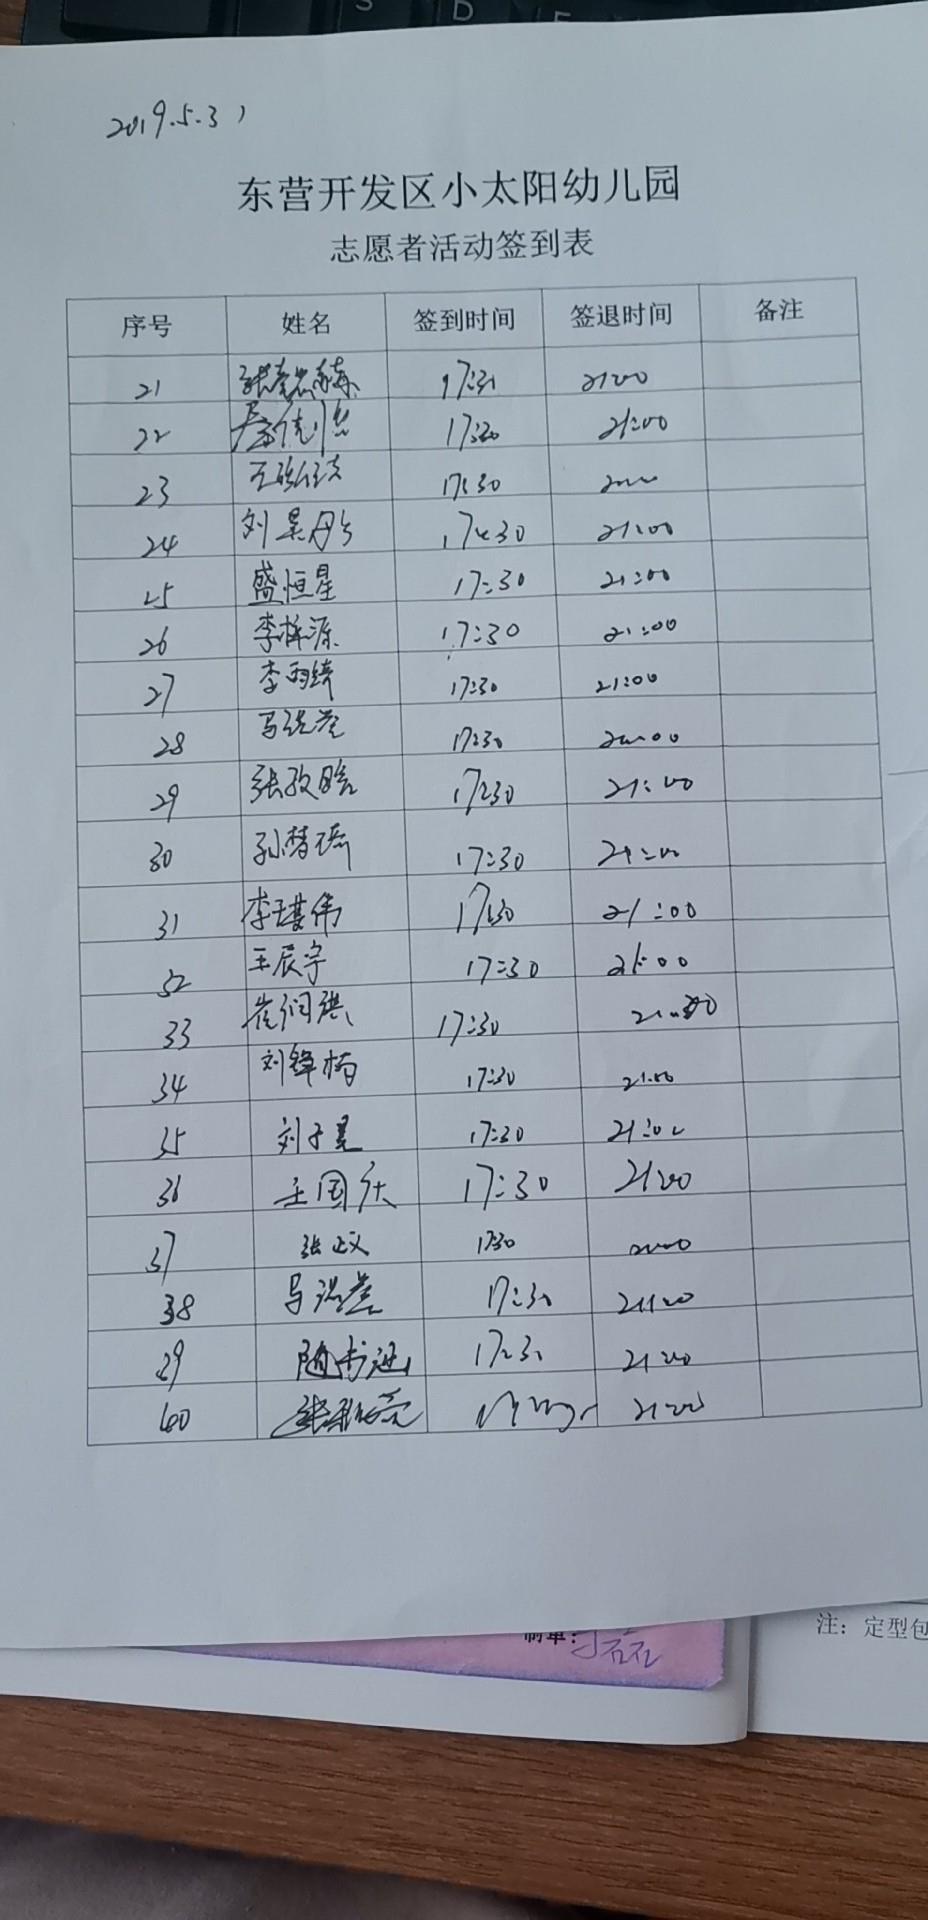 2019.5.31
东营开发区小太阳幼儿园
志愿者活动签到表
序号 姓名 签到时间 签退时间 备注
21 17:30 21:00
22 17:30 21:00
23 17:30
24 刘昊 17:30 21:00
25 盛恒星 17:30 21:00
26 李梓源 17:30 21:00
27 李雨绮 17:30 21:00
28 17:30
29 张孜晗 17:30 21:00
30 孙梦瑶 17:30 21:00
31 李琪伟 17:30 21:00
32 王辰宇 17:30 21:00
33 崔润祺 17:30 21:00
34 刘锋楠 17:30 21:00
35 刘子 17:30 21:00
36 王国庆 17:30 21:00
37 张义 17:30
38 17:30 21:00
39 随书 17:30 21:00
40 21:00
注：定型包
制单：